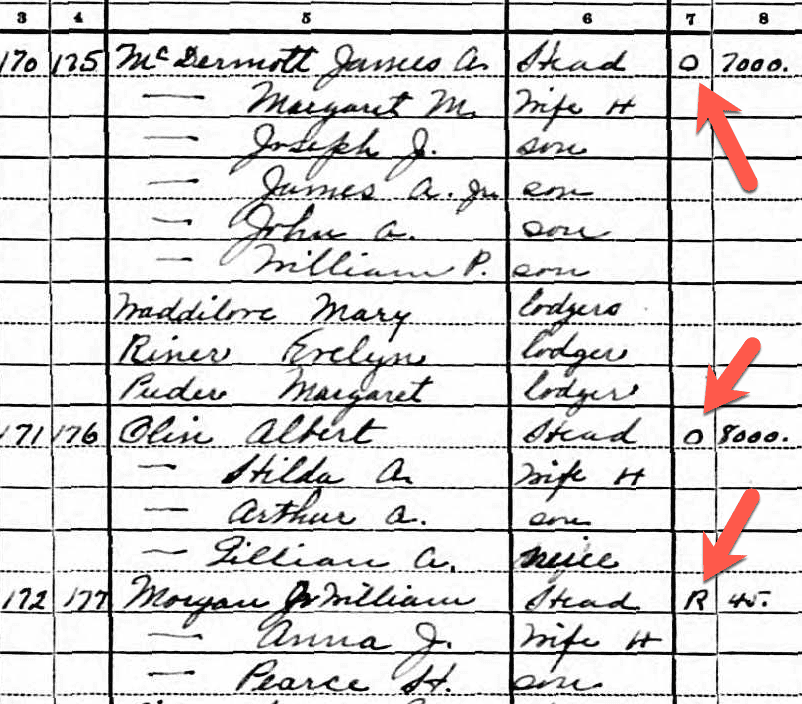 3 4 5 6 7 8
170 175 McDermott James A. Head O 7000.
— Margaret M. Wife H
— Joseph J. son
— James A. Jr. son
— John A. son
— William P. son
Waddilove Mary lodgers
Riner Evelyn lodger
Puder Margaret lodger
171 176 Olin Albert Head O 8000.
— Hilda A. Wife H
— Arthur A. son
— Lillian A. neice
172 177 Morgan Jr William Head R 45.
— Anna J. Wife H
— Pearce H. son